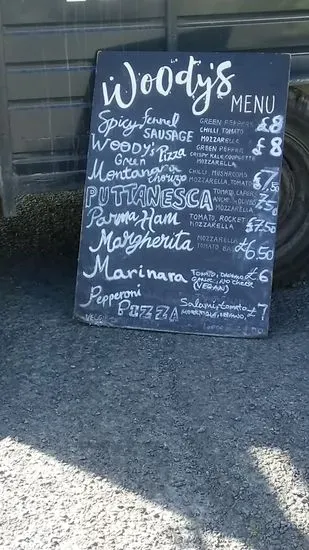 Woody's
MENU
Spicy fennel SAUSAGE GREEN PEPPERS CHILLI TOMATO MOZZARELLA £8
WOODY'S Green Pizza GREEN PEPPER CRISPY KALE, COURGETTE MOZZARELLA £8
Montanara chorizo CHILLI MUSHROOMS MOZZARELLA, TOMATO £7.50
PUTTANESCA TOMATO, CAPERS MOZZARELLA £7.50
Parma Ham TOMATO, ROCKET MOZZARELLA £7.50
Margherita MOZZARELLA TOMATO £6.50
Marinara TOMATO, OREGANO GARLIC, NO CHEESE (VEGAN) £6
Pepperoni PIZZA Salami, tomato £7